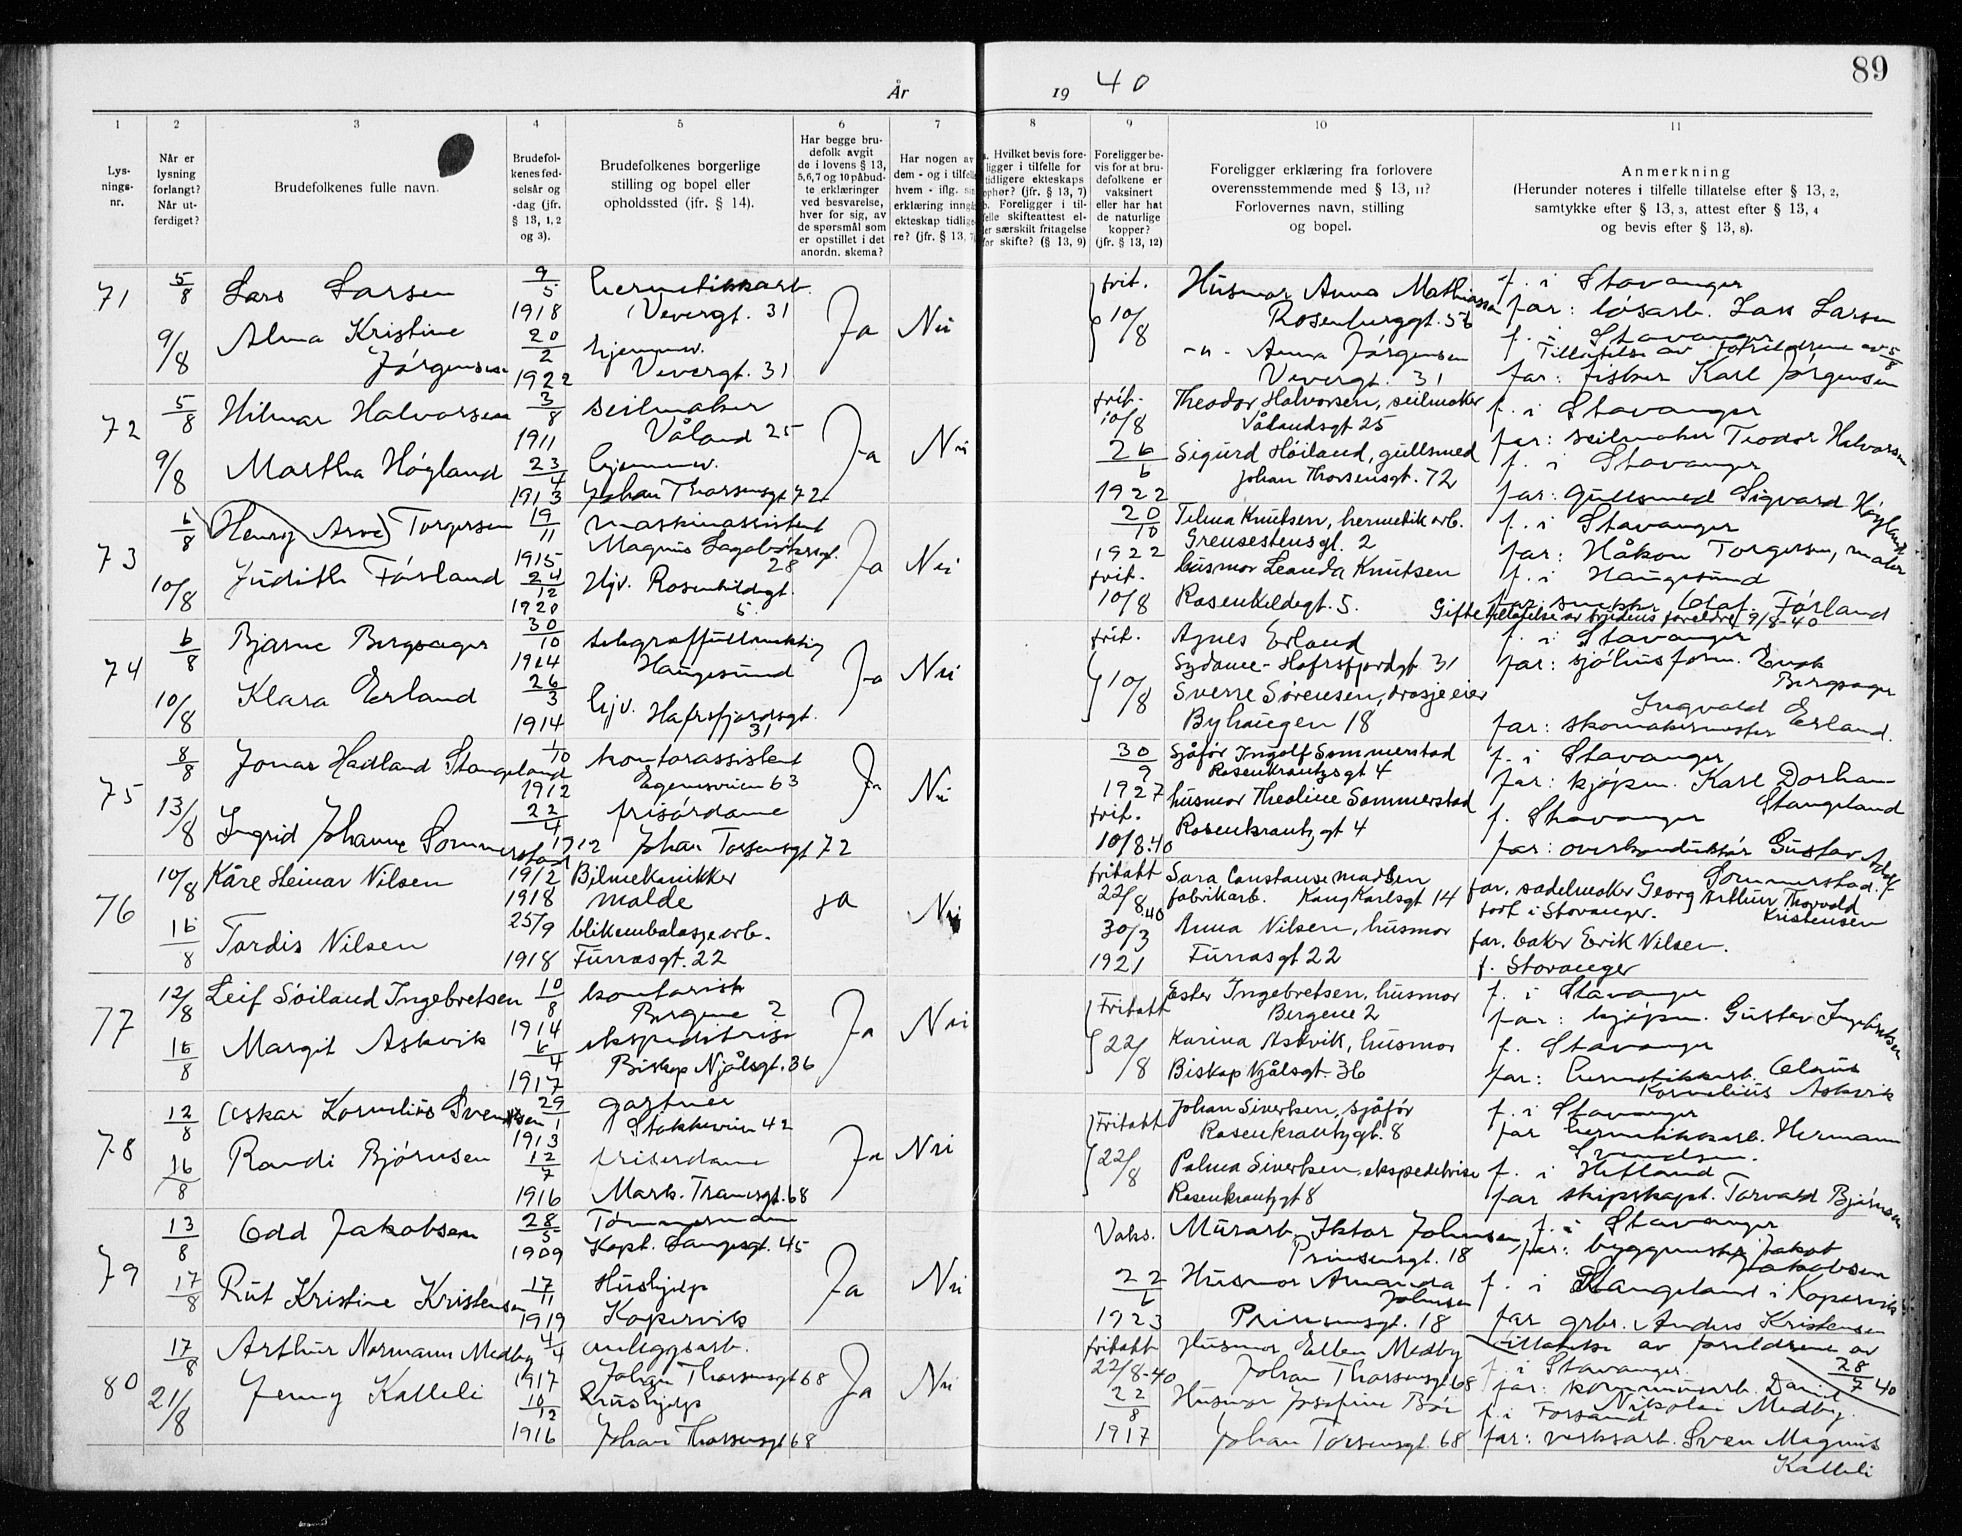 89
År 19 40
1 2 3 4 5 6 7 8 9 10 11
Lys-
nings-
nr.
Når er
lysning
forlangt?
Når ut-
ferdiget?
Brudefolkenes fulle navn.
Brudefol-
kenes fød-
selsår og
-dag (jfr.
§ 13, 1, 2
og 3).
Brudefolkenes borgerlige
stilling og bopel eller
opholdssted (ifr. § 14).
Har begge bru-
defolk avgit
de i lovens § 13,
5,6,7 og 10 påbud-
te erklæringer
ved besvarelse,
hver for sig, av
de spørsmål som
er opstillet i det
anordn. skema?
Har nogen av
dem - og i tilfelle
hvem - iflg. sin
erklæring inngå
ekteskap tidlige-
re? (jfr. § 13, 7)
a. Hvilket bevis fore-
ligger i tilfelle for
tidligere ekteskaps
ophør? (jfr. § 13, 7)
b. Foreligger i til-
felle skifteattest el-
ler særskilt fritagelse
for skifte? (§ 13, 9)
Foreligger be-
vis for at bru-
defolkene er
vaksinert
eller har hat
de naturlige
kopper?
(jfr. § 13, 12)
Foreligger erklæring fra forlovere
overensstemmende med § 13, 11?
Forlovernes navn, stilling
og bopel.
Anmerkning
(Herunder noteres i tilfelle tillatelse efter § 13, 2,
samtykke efter § 13, 3, attest efter § 13, 4
og bevis efter § 13, 8).
71 5/8 Lars Larsen 9/5 1918 hermetikkarb. Vevergt. 31 Ja Nei frit. Husmor Anna Mathiassen Rosenberggt. 56 f. i Stavanger
far: løsarb. Lars Larsen
9/8 Alma Kristine Jørgensen 20/2 1922 hjemmev. Vevergt. 31 10/8 -"- Anna Jørgensen Vevergt. 31 f. i Stavanger
Tillatelse av foreldrene av 5/8
far: fisker Karl Jørgensen
72 5/8 Hilmar Halvorsen 3/8 1911 seilmaker Våland 25 Ja Nei frit. 10/8 Theodor Halvorsen, seilmaker Vålandsgt 25 f. i Stavanger
far: seilmaker Teodor Halvorsen
9/8 Martha Høyland 23/4 1913 hjemmev. Johan Thorsensgt 72 26/6 1922 Sigurd Høiland, gullsmed Johan Thorsensgt. 72 f. i Stavanger
far: gullsmed Sigvard Høyland
73 6/8 Henry Arve Torgersen 19/11 1915 maskinassistent Magnus Lagabøtersgt. 28 Ja Nei 20/10 1922 Tilma Knutsen, hermetikarb. Grensestensgt. 2 f. i Stavanger
far: Håkon Torgersen, maler
10/8 Judith Førland 24/12 1920 Hjv. Rosenkildegt. 5. frit. 10/8 husmor Leanda Knutsen Rosenkildegt. 5. f. i Haugesund
far: snekker Olaf Førland
Giftetillatelse av brudens foreldre 9/8-40
74 6/8 Bjarne Bergsager 30/10 1914 telegraffullmektig Haugesund Ja Nei frit. Agnes Erland Sydame- Hafrsfjordgt. 31 f. i Stavanger
far: sjøhusform. Enok Bergsager
10/8 Klara Erland 26/3 1914 hjv. Hafrsfjordsgt. 31 10/8 Sverre Sørensen, drosjeeier Byhaugen 18 far: skomakermester Ingvald Erland.
75 8/8 Jonar Hadland Stangeland 1/10 1912 kontorassistent Egenesveien 63 Ja Nei 30/9 1927 Sjåfør Ingolf Sommerstad Rosenkrantzgt 4 f. i Stavanger
far: kjøpm. Karl Dorhan Stangeland
13/8 Ingrid Johanne Sommerstad 22/4 1912 frisørdame Johan Torsensgt 72 frit. 10/8.40 husmor Theoline Sommerstad Rosenkrantzgt 4 f. Stavanger
far: overkonduktør Gustav Adolf Sommerstad.
76 10/8 Kåre Steinar Nilsen 19/2 1918 Bilmekanikker Malde ja Nei fritatt 22/8.40 Sara Constanse Madsen fabrikarb. Kong Karlsgt 14 far. sadelmaker Georg Arthur Thorvald Kristensen
født i Stavanger.
16/8 Tordis Nilsen 25/9 1918 blikembalasjearb. Furrasgt. 22 30/3 1921 Anna Nilsen, husmor Furrasgt 22 far. baker Erik Nilsen.
f. Stavanger
77 12/8 Leif Søiland Ingebretsen 10/8 1914 kontorist Bergene 2 Ja Nei Fritatt Ester Ingebretsen, husmor Bergene 2 f. i Stavanger
far: kjøpm. Gustav Ingebretsen
16/8 Margit Askvik 6/4 1917 ekspeditrise Biskop Njålsgt. 36 22/8 Karina Askvik, husmor Biskop Njålsgt. 36 f. Stavanger
far: hermetikkarb. Claus Kornelius Askvik
78 12/8 Oskar Kornelius Svendsen 29/1 1913 gartner Stokkaveien 42 Ja Nei Fritatt Johan Sivertsen, sjåfør Rosenkrantzgt. 8 f. i Stavanger
far hermetikkarb. Hermann Svendsen.
16/8 Randi Bjørnsen 12/7 1916 friserdame Mark. Tranesgt. 68 22/8 Palma Sivertsen, ekspeditrise Rosenkrantzgt 8 f. i Hetland
far skipskapt. Torvald Bjørnsen
79 13/8 Odd Jakobsen 28/5 1909 Tømmermann Kapt. Langesgt. 45 Ja Nei Vaks. Murarb. Iktor Johnsen Prinsensgt. 18 f. i Stavanger
far: byggmester Jakob Jakobsen
17/8 Rut Kristine Kristensen 17/11 1919 Hushjelp Kopervik 22/6 1923 Husmor Amanda Johnsen Prinsensgt. 18 f. i Stangeland i Kopervik
far grbr. Anders Kristensen
tillatelse av foreldrene av 28/7 40
80 17/8 Arthur Normann Medby 4/4 1917 anleggsarb. Johan Thorsensgt 68 Ja Nei fritatt 22/8-40 Husmor Ellen Medby Johan Thorsensgt 68 f. i Stavanger.
far: kommunearb. Daniel Nikolai Medby.
21/8 Jenny Kalleli 10/12 1916 Hushjelp Johan Thorsensgt 68 22/8 1917 Husmor Josefine Bøe Johan Torsensgt. 68 f. i Forsand
far: verksarb. Sven Magnus Kalleli